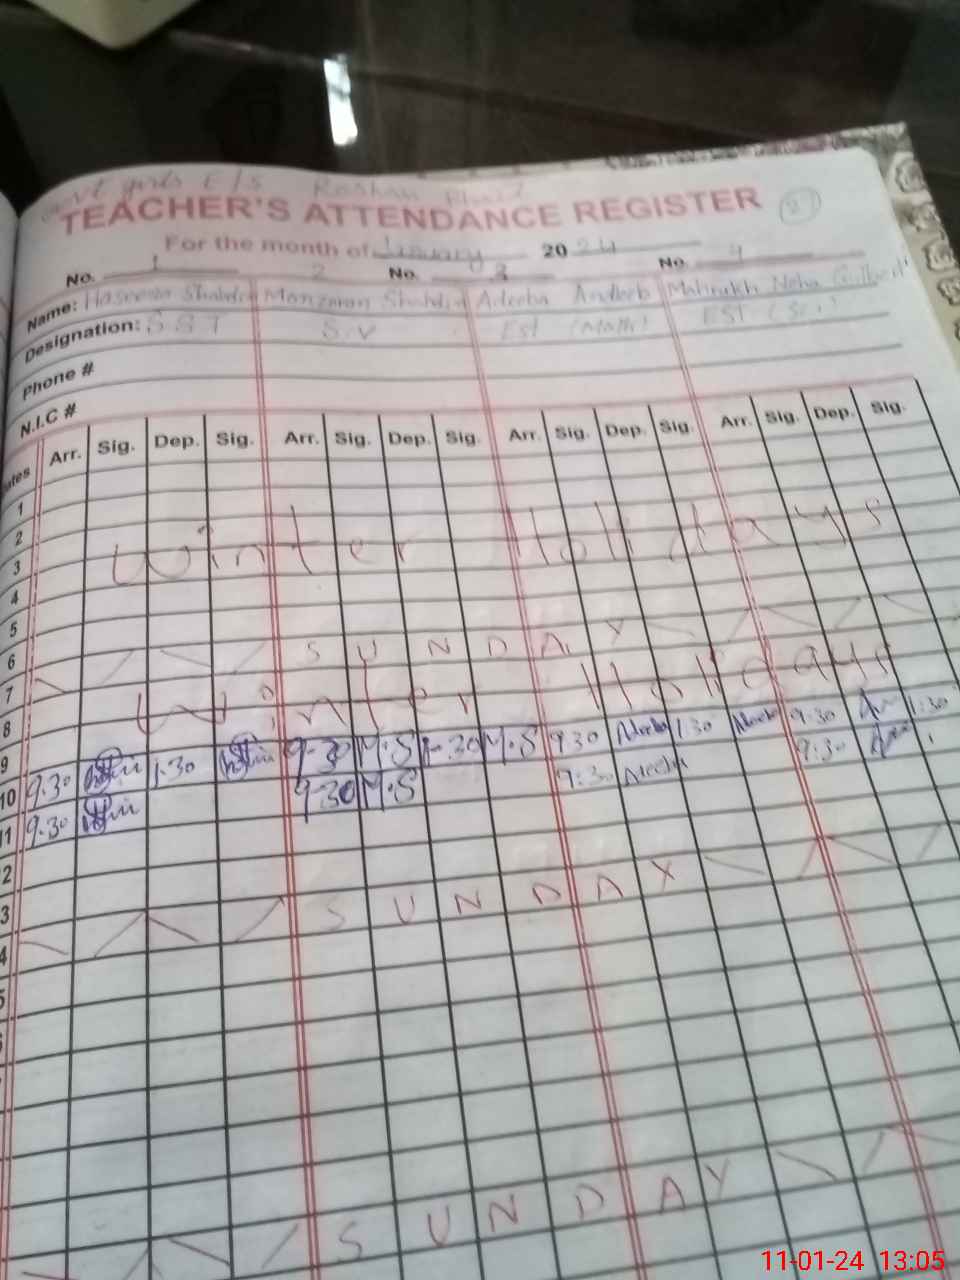 Govt girls E/S Roshan
TEACHER'S ATTENDANCE REGISTER 27
For the month of January 2024
No. 1 2 No. 3 No. 4
Name: Haseena Shahdin Manzoran Shahdin Adeeba Andleeb Mahrukh Neha
Designation: S.S.T S.V Est (Math) EST (Sci)
Phone #
N.I.C #
Dates Arr. Sig. Dep. Sig. Arr. Sig. Dep. Sig. Arr. Sig. Dep. Sig. Arr. Sig. Dep. Sig.
1
2
3 Winter Holidays
4
5
6
7 SUNDAY
8 Winter Holidays
9
10 9:30 1:30 9-30 M.S 1-30 M.S 9:30 1:30 9:30 1:30
11 9:30 9:30 M.S 9:30 9:30
2
3
4 SUNDAY
5
SUNDAY
11-01-24 13:05